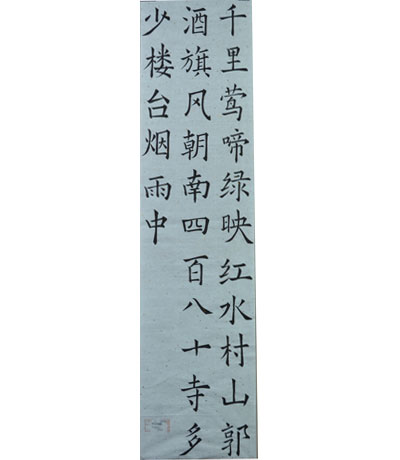 千里莺啼绿映红水村山郭
酒旗风朝南四百八十寺多
少楼台烟雨中